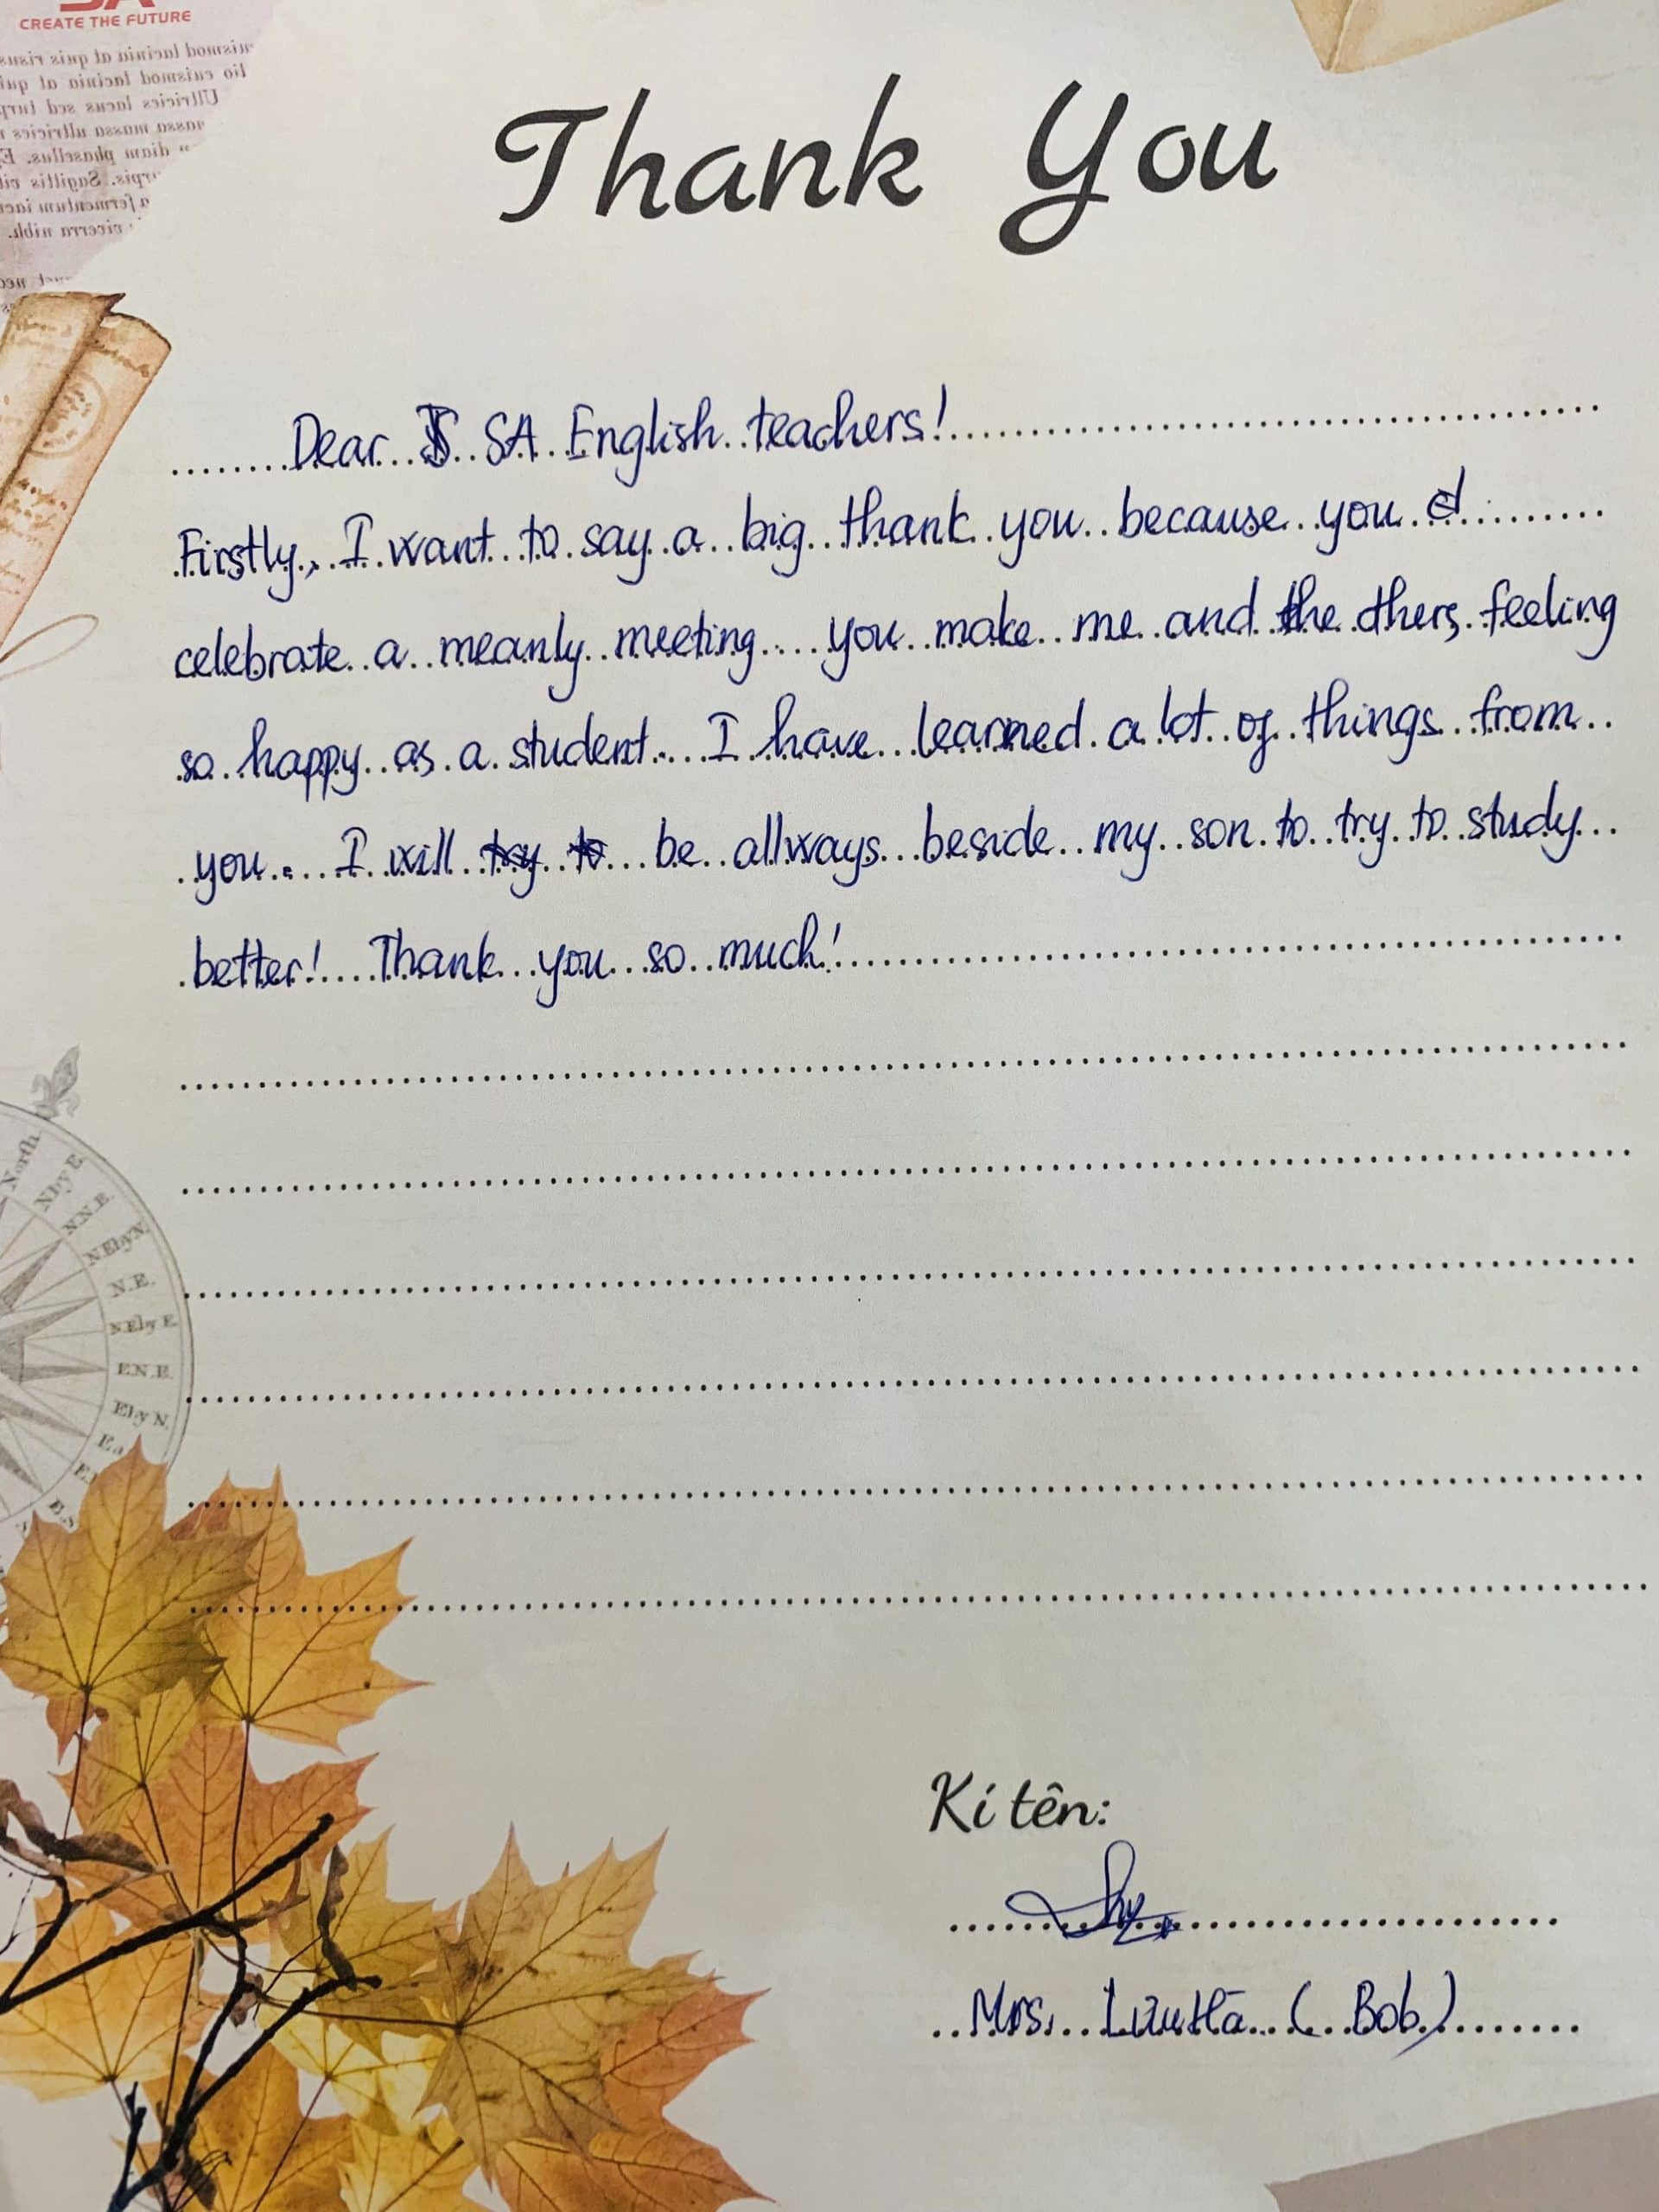 SA
CREATE THE FUTURE
Thank You
Dear SA English teachers!
Firstly, I want to say a big thank you because you
celebrate a meanly meeting. you make me and the others feeling
so happy as a student. I have learned a lot of things from
you. I will try to be allways beside my son to try to study
better! Thank you so much!
North
N by E.
N.N.E.
N.E by N.
N.E.
N.E by E.
E.N.E.
E by N.
Kí tên:
Mrs. Lưu Hà (Bob)